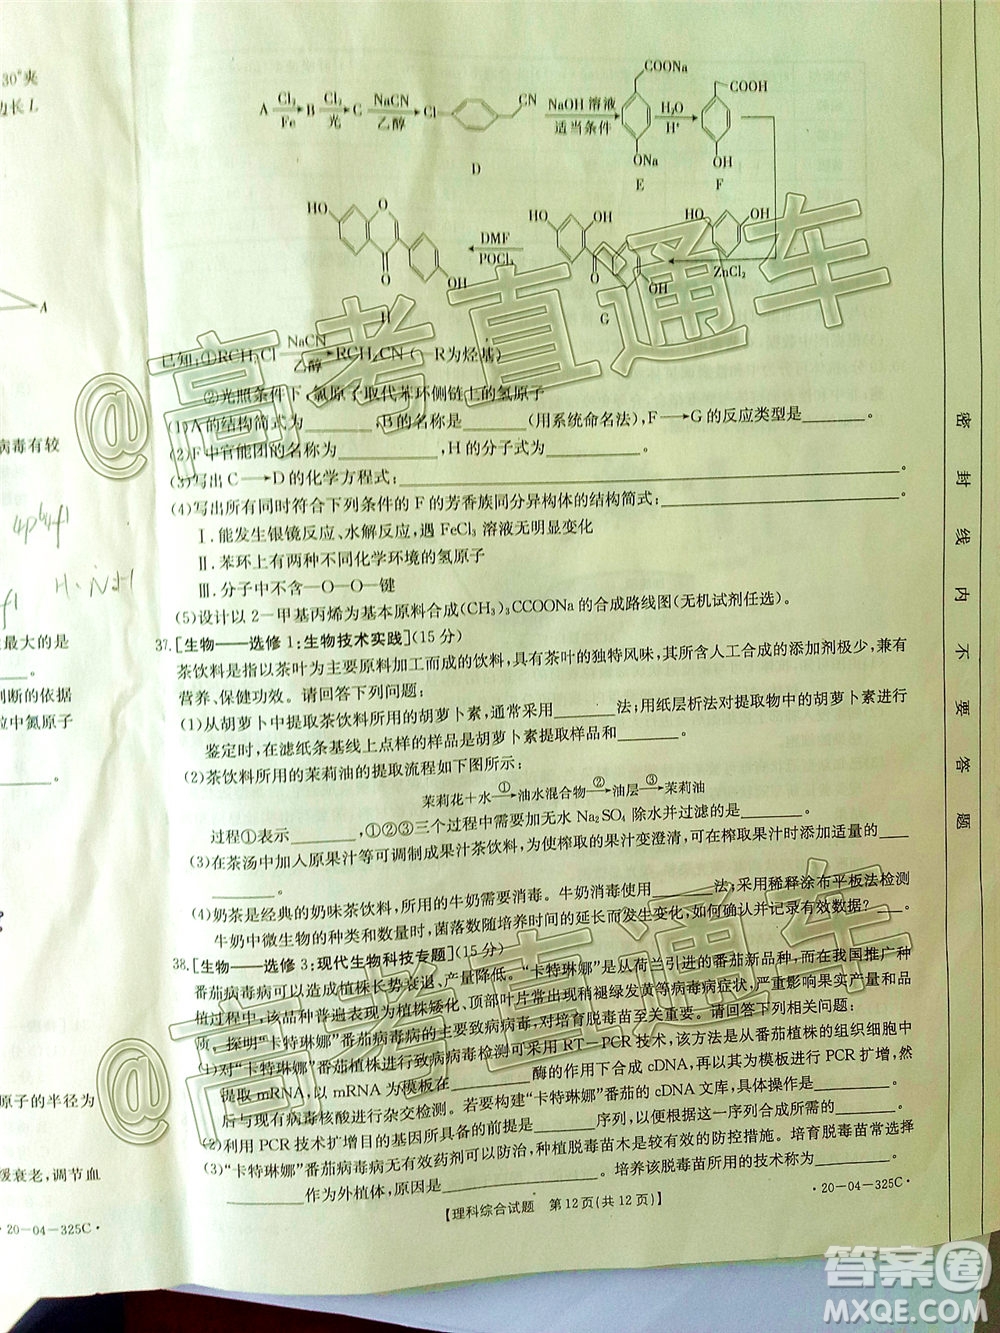 30°夹
边长 L
A
病毒有较
最大的是
判断的依据
粒中氮原子
原子的半径为
缓衰老,调节血
· 20-04-325C ·
A Cl₂ Fe B Cl₂ 光 C NaCN 乙醇 Cl CN NaOH 溶液 适当条件 COONa ONa H₂O H⁺ COOH OH
D E F
HO O O OH DMF POCl₃ HO OH O OH HO OH ZnCl₂
H G
已知:①RCH₂Cl NaCN 乙醇 RCH₂CN(—R为烃基)
②光照条件下,氯原子取代苯环侧链上的氢原子
(1)A的结构简式为________,B的名称为________(用系统命名法),F→G的反应类型是________。
(2)F中官能团的名称为________,H的分子式为________。
(3)写出C→D的化学方程式:________。
(4)写出所有同时符合下列条件的F的芳香族同分异构体的结构简式:________。
Ⅰ.能发生银镜反应、水解反应,遇FeCl₃溶液无明显变化
Ⅱ.苯环上有两种不同化学环境的氢原子
Ⅲ.分子中不含—O—O—键
(5)设计以2-甲基丙烯为基本原料合成(CH₃)₃CCOONa的合成路线图(无机试剂任选)。
37.[生物——选修1:生物技术实践](15分)
茶饮料是指以茶叶为主要原料加工而成的饮料,具有茶叶的独特风味,其所含人工合成的添加剂极少,
营养、保健功效。请回答下列问题:
(1)从胡萝卜中提取茶饮料所用的胡萝卜素,通常采用________法;用纸层析法对提取物中的胡萝卜素进行
鉴定时,在滤纸条基线上点样的样品是胡萝卜素提取样品和________。
(2)茶饮料所用的茉莉油的提取流程如下图所示:
茉莉花+水 ① 油水混合物 ② 油层 ③ 茉莉油
过程①表示________,①②③三个过程中加无水Na₂SO₄除水并过滤的是________。
(3)在茶汤中加入原果汁等可调制成果汁茶饮料,为使榨取的果汁变澄清,可在榨取果汁时添加适量的____
________。
(4)奶茶是经典的奶味茶饮料,所用的牛奶需要消毒。牛奶消毒使用________法;采用稀释涂布平板法检测
牛奶中微生物的种类和数量时,菌落数随培养时间的延长而发生变化,如何确认并记录有效数据?____。
38.[生物——选修3:现代生物科技专题](15分)
番茄病毒病可以造成植株长势衰退、产量降低。“卡特琳娜”是从荷兰引进的番茄新品种,而在我国推广种
植过程中,该品种普遍表现为植株矮化、顶部叶片常出现稍褪绿发黄的病毒病症状,严重影响果实产量和品
质。探明“卡特琳娜”番茄病毒病的主要致病病毒,对培育脱毒苗至关重要。请回答下列相关问题:
(1)对“卡特琳娜”番茄植株进行致病病毒检测可采用RT-PCR技术,该方法是从番茄植株的组织细胞中
提取mRNA,以mRNA为模板在________酶的作用下合成cDNA,再以其为模板进行PCR扩增,然
后与现有病毒核酸进行杂交检测。若要构建“卡特琳娜”番茄的cDNA文库,具体操作是________。
(2)利用PCR技术扩增目的基因所具备的前提是________序列,以便合成________。
(3)“卡特琳娜”番茄病毒病无有效药剂可以防治,种植脱毒苗木是较有效的防控措施。培育脱毒苗时,可选
________作为外植体,原因是________。培养该脱毒苗所用的主要技术是________。
【理科综合试题 第12页(共12页)】
· 20-04-325C ·
密封线内不要答题
@高考直通车
@高考直通车
答案圈
MXQE.COM